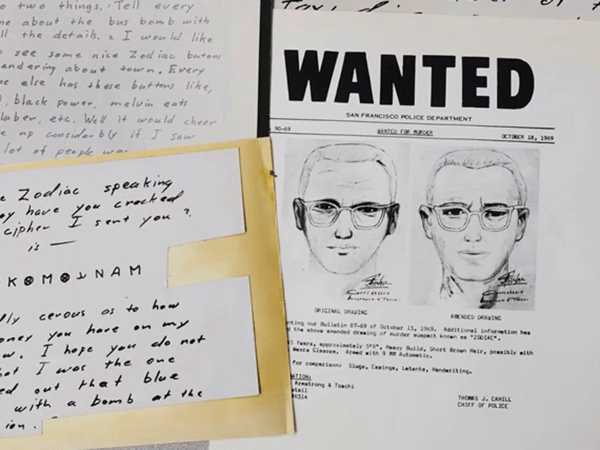 o two things. Tell every
ne about the bus bomb with
ll the details. I would like
see some nice Zodiac butons
andering about town. Every
ne else has these buttons like,
, black power, melvin eats
blaber, etc. Well it would cheer
e up considerably if I saw
lot of people
e Zodiac speaking
by have you cracked
cipher I sent you?
is —
K⊗M⊗NAM
lly cerous as to how
oney you have on my
w. I hope you do not
hat I was the one
ed out that blue
with a bomb at the
ion.
WANTED
SAN FRANCISCO POLICE DEPARTMENT
90-69 WANTED FOR MURDER OCTOBER 18, 1969
ORIGINAL DRAWING AMENDED DRAWING
nting our Bulletin 87-69 of October 13, 1969. Additional information has
the above amended drawing of murder suspect known as "ZODIAC".
5 Years, approximately 5'8", Heavy Build, Short Brown Hair, possibly with
Wears Glasses. Armed with 9 MM Automatic.
for comparison: Slugs, Casings, Latents, Handwriting.
Armstrong & Toschi
THOMAS J. CAHILL
CHIEF OF POLICE